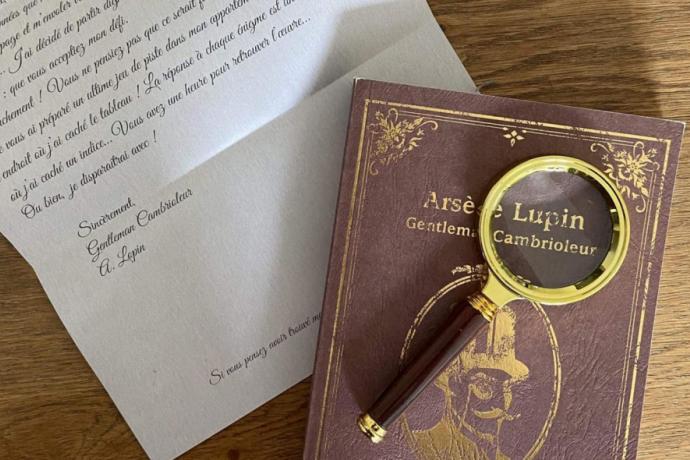 nnées que
page et m'envoler
... J'ai décidé de partir dig
: que vous acceptiez mon défi.
chement ! Vous ne pensiez pas que ce serait f
e vous ai préparé un ultime jeu de piste dans mon appartement
endroit où j'ai caché le tableau ! La réponse à chaque énigme est un
où j'ai caché un indice... Vous avez une heure pour retrouver l'œuvre...
Ou bien, je disparaîtrai avec !
Sincèrement,
Gentleman Cambrioleur
A. Lupin
Si vous pensez avoir trouvé m
Arsène Lupin
Gentleman Cambrioleur